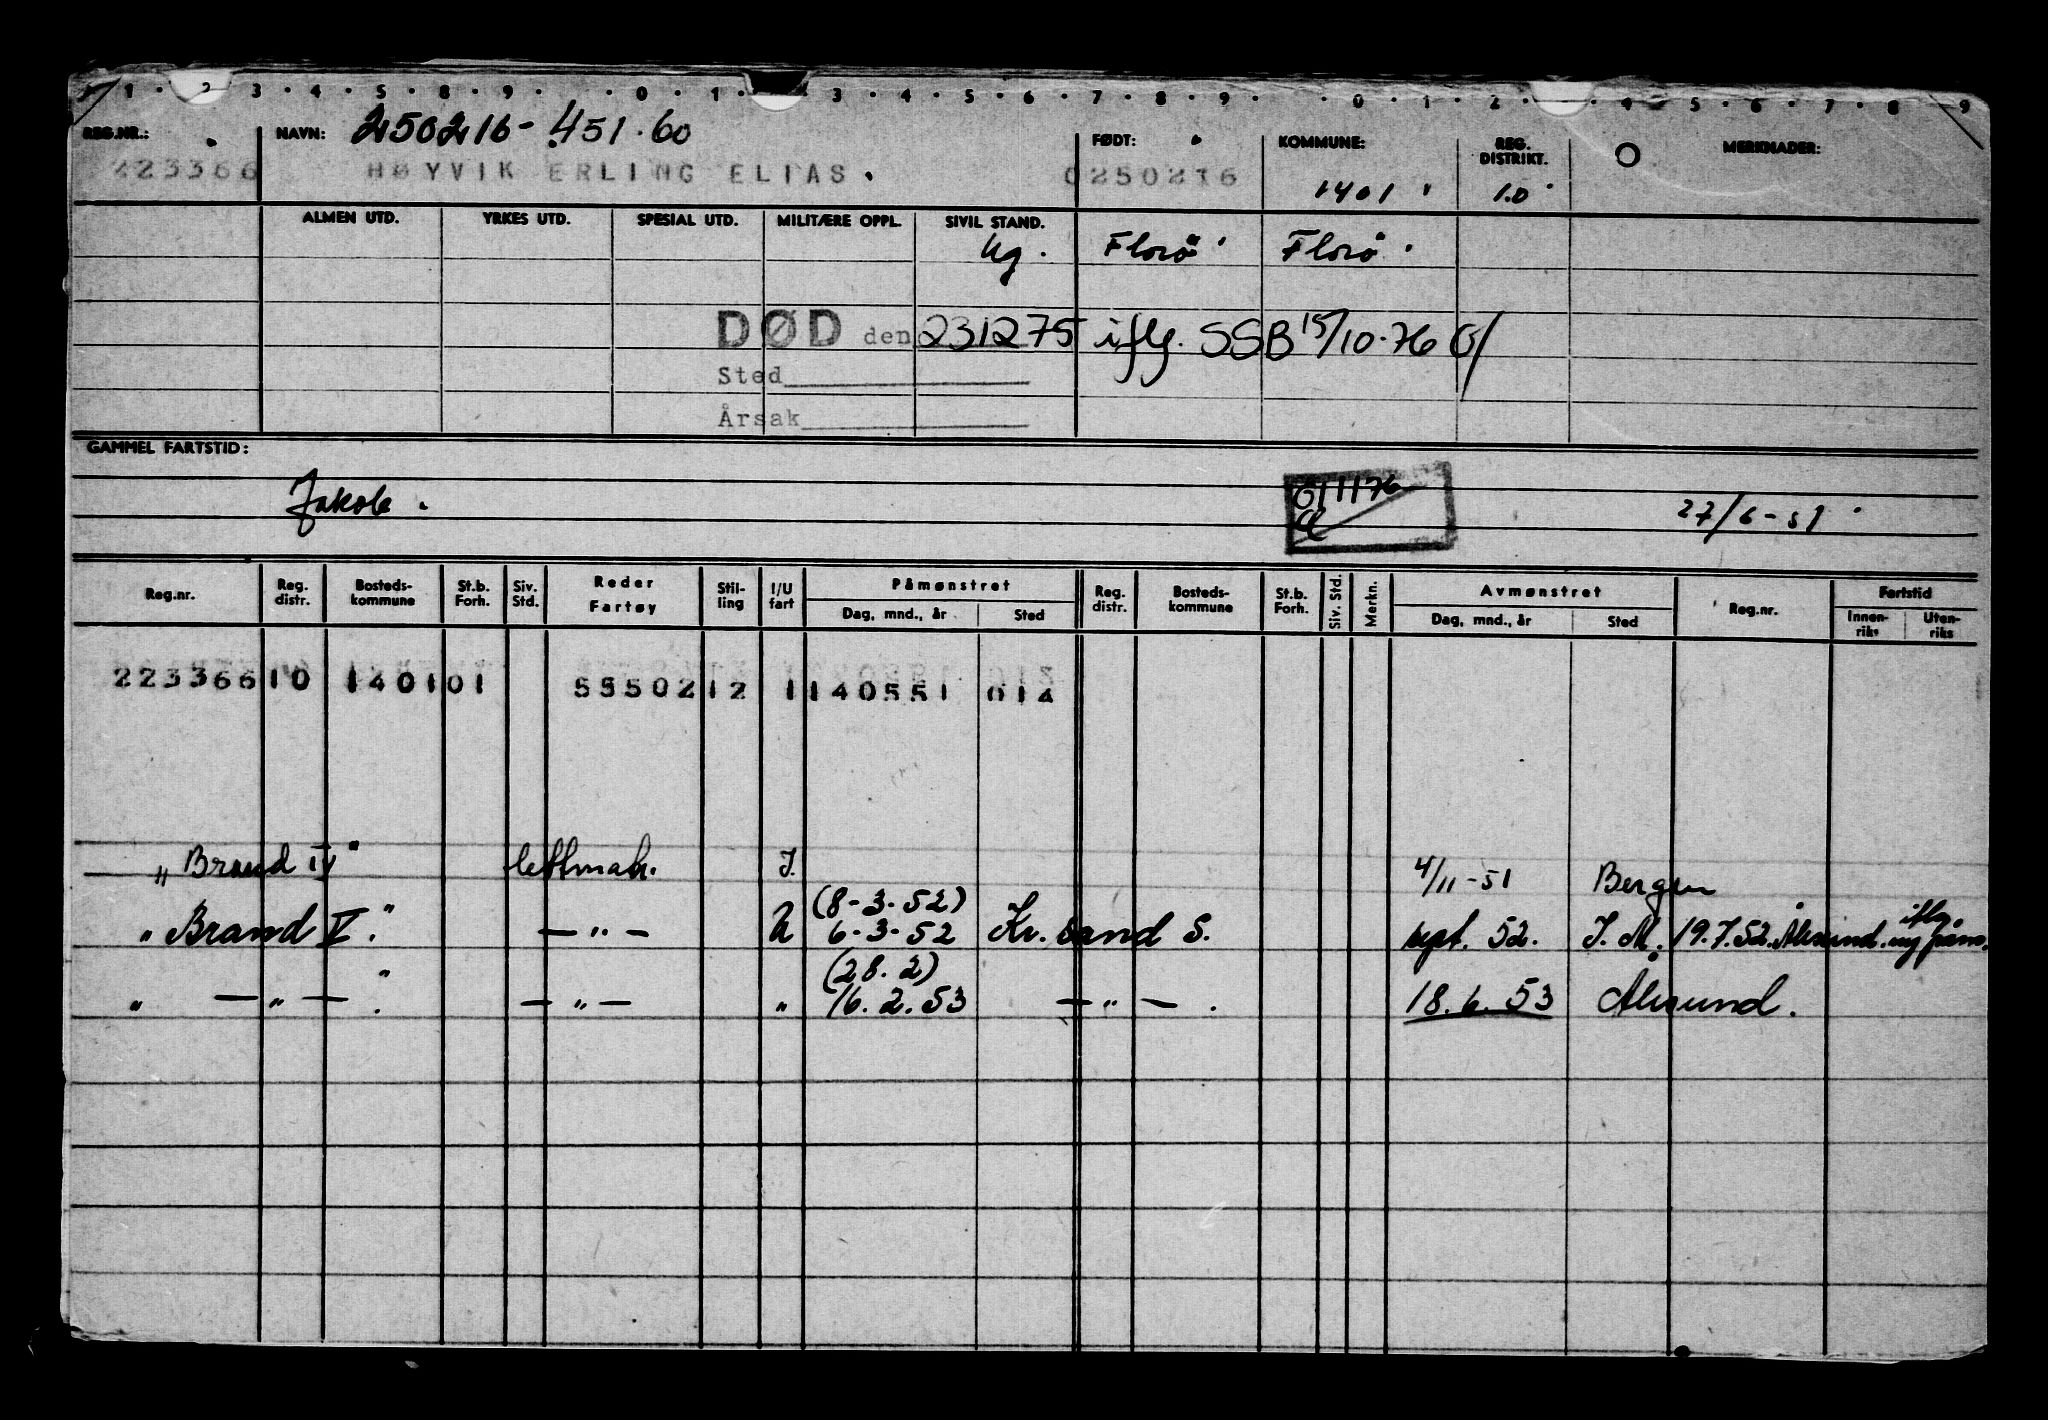 1 2 3 4 5 8 9 0 1 3 4 5 6 7 8 9 0 1 2 4 5 6 7 8 9
REG.NR.: NAVN: 250216-451.60 FØDT: KOMMUNE: REG. DISTRIKT. MERKNADER:
223366 HØYVIK ERLING ELIAS. 0250216 1401 10
ALMEN UTD. YRKES UTD. SPESIAL UTD. MILITÆRE OPPL. SIVIL STAND.
Ug. Florø Florø
DØD den 231275 iflg. SSB 15/10-76
Sted
Årsak
GAMMEL FARTSTID:
Jakob. 27/6-51
Reg.nr. Reg. distr. Bosteds-kommune St.b. Forh. Siv. Std. Reder Fartøy Stil-ling I/U fart Påmønstret Dag, mnd., år Sted Reg. distr. Bosteds-kommune St.b. Forh. Siv. Std. Merkn. Avmønstret Dag, mnd., år Sted Reg.nr. Fartstid Innen-riks Uten-riks
223366 10 1401 01 55502 12 1 140551 014
„Brand IV" lettmatr. I. 4/11-51 Bergen
(8-3-52)
„Brand V." —"— U 6-3-52 Kr.sand S. sept. 52. I.M. 19.7.52. Ålesund. iflg. ny påm.
(28.2)
„ —"— ." —"— " 16.2.53 —"— . 18.6.53 Ålesund.